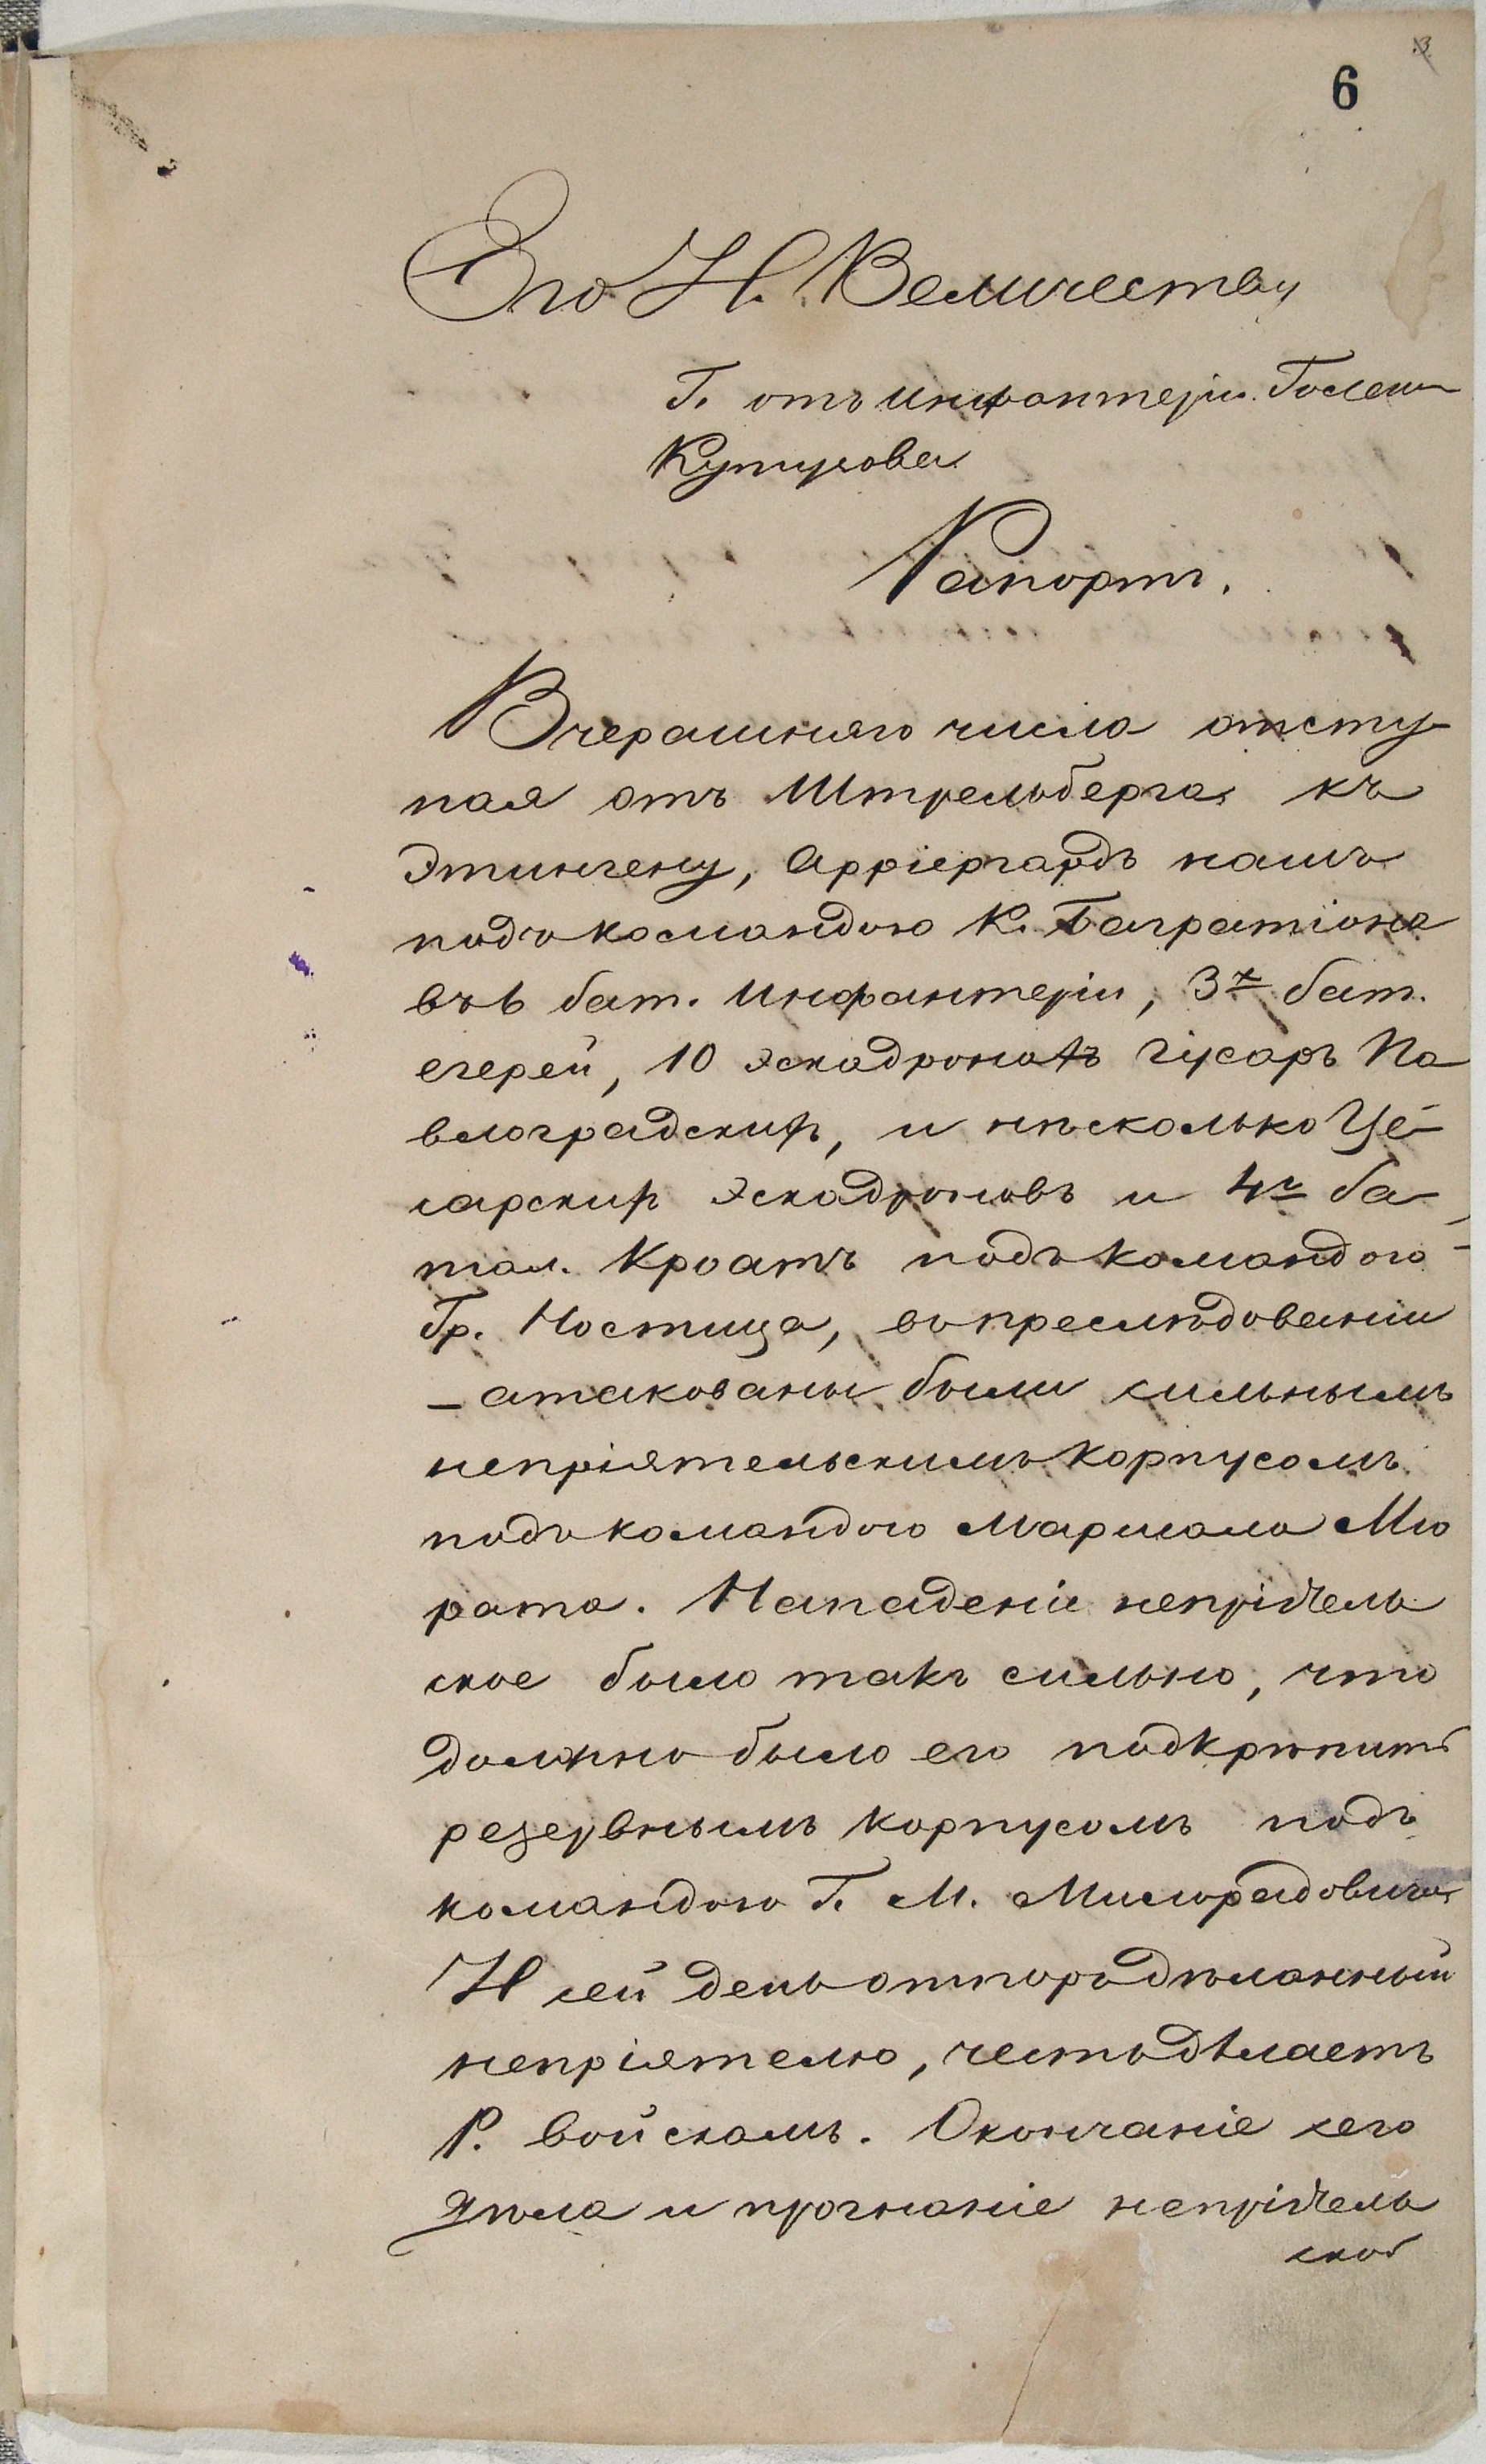 3
6
Его И. Величеству
Г. отъ инфантеріи Голени
Кутузова
Рапортъ.
Вчерашняго числа отсту
пая отъ Штрельберга къ
Этингену, Арріергардъ нашъ
подъ командою К. Багратіона
въ 6 бат. Инфантеріи, 3х бат.
егерей, 10 эскадроновъ гусаръ Па
влоградскихъ, и нѣсколько Це-
сарскихъ Эскадроновъ и 4х ба
тал. Кроатъ подъ командою
Гр. Ностица, въ преслѣдованіи
- атакованы были сильнымъ
непріятельскимъ корпусомъ
подъ командою Маршала Мю
рата. Нападеніе непріятель
ское было такъ сильно, что
должно было его подкрѣпить
резервнымъ корпусомъ подъ
командою Г. М. Милорадовича
И сей день отпоръ дѣланный
непріятелю, честь дѣлаетъ
Р. войскамъ. Окончаніе сего
дѣла и прогнаніе непріятель
ской